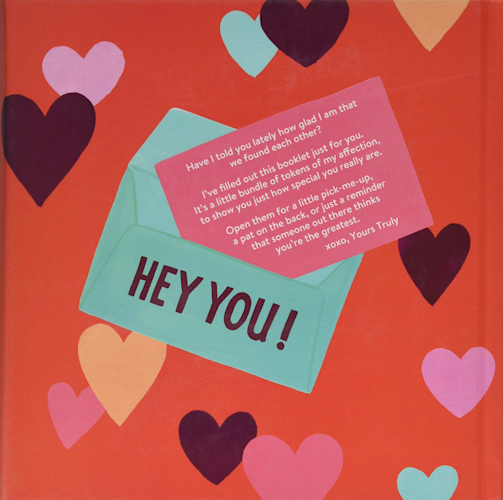 Have I told you lately how glad I am that
we found each other?
I've filled out this booklet just for you.
It's a little bundle of tokens of my affection,
to show you just how special you really are.
Open them for a little pick-me-up,
a pat on the back, or just a reminder
that someone out there thinks
you're the greatest.
xoxo, Yours Truly
HEY YOU!